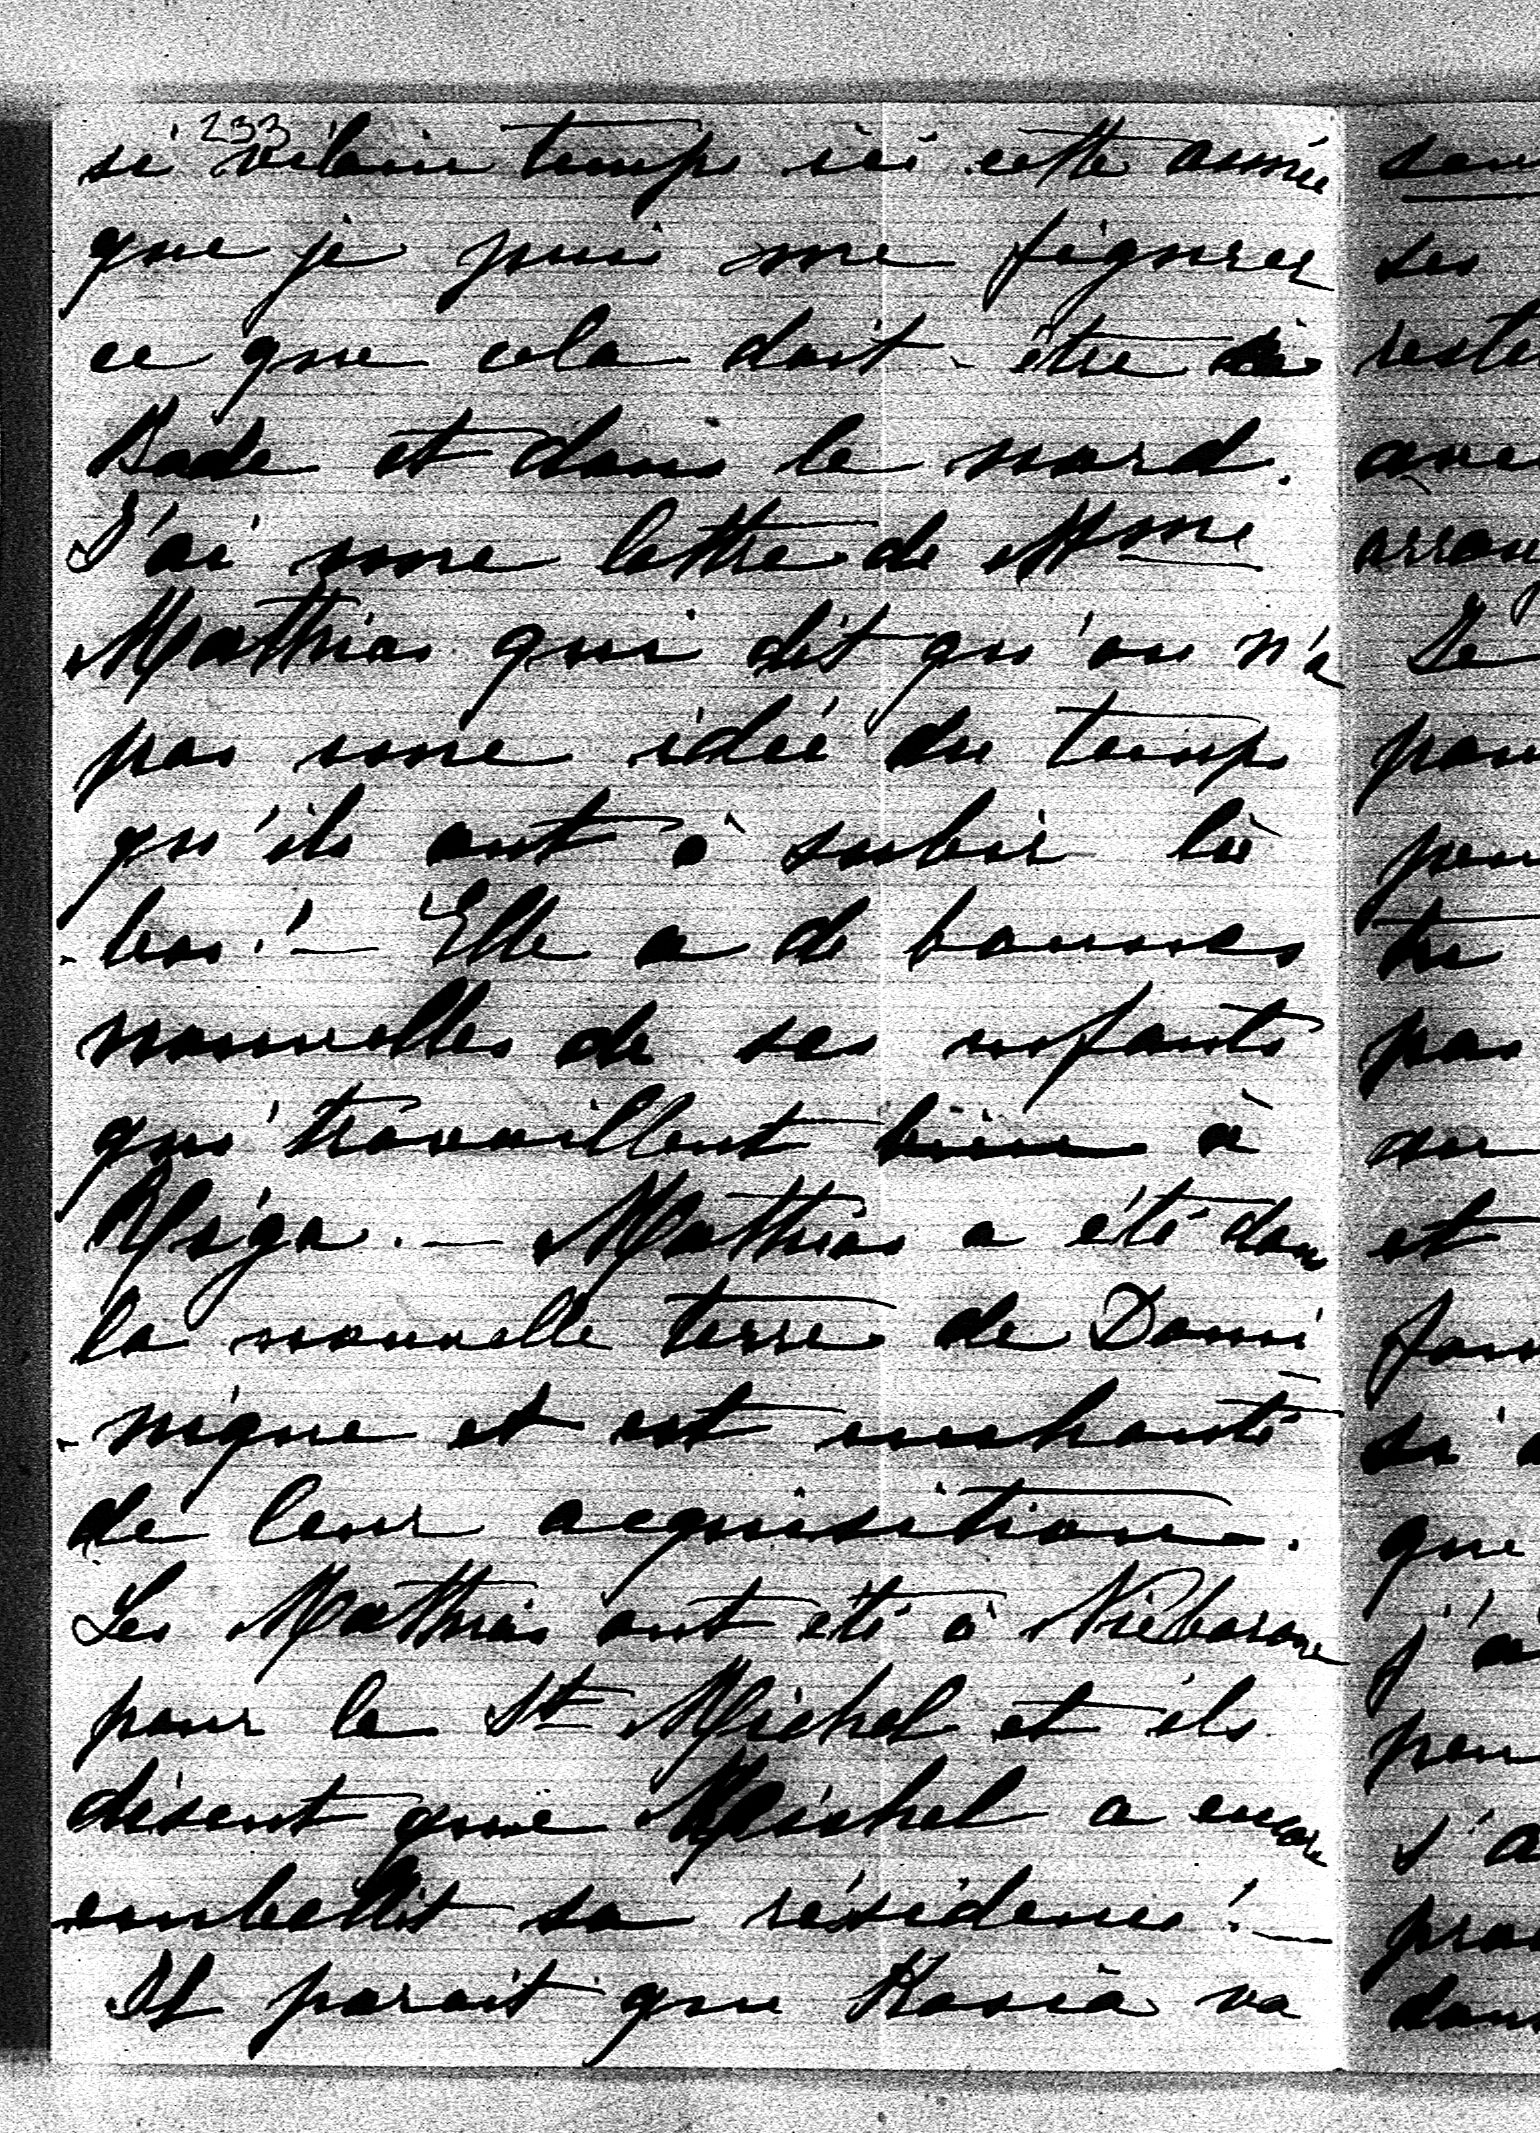 233
si vilain temps ici cette année
que je puis me figurer
ce que cela doit être à
Bade et dans le nord.
J'ai une lettre de Mme
Mathias qui dit qu'on n'a
pas une idée du temps
qu'ils ont à subir là
-bas! — Elle a de bonnes
nouvelles de ses enfants
qui travaillent bien à
Riga. — Mathias a été dans
la nouvelle terre de Domi
-nique et est enchanté
de leur acquisition.
Les Mathias ont été à
pour la St Michel et ils
disent que Michel a encore
embellit sa résidence! —
Il parait que Kasia va
sans
ses
reste
avec
Je
pas
du
et
si
que
j'a
s'a
dans